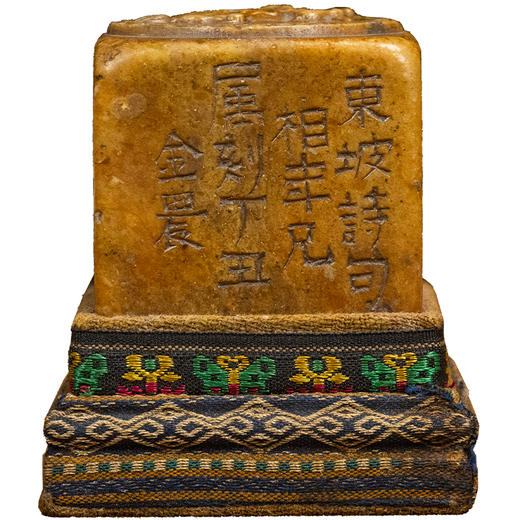 東坡詩句
相年兄
属刻丁丑
金農